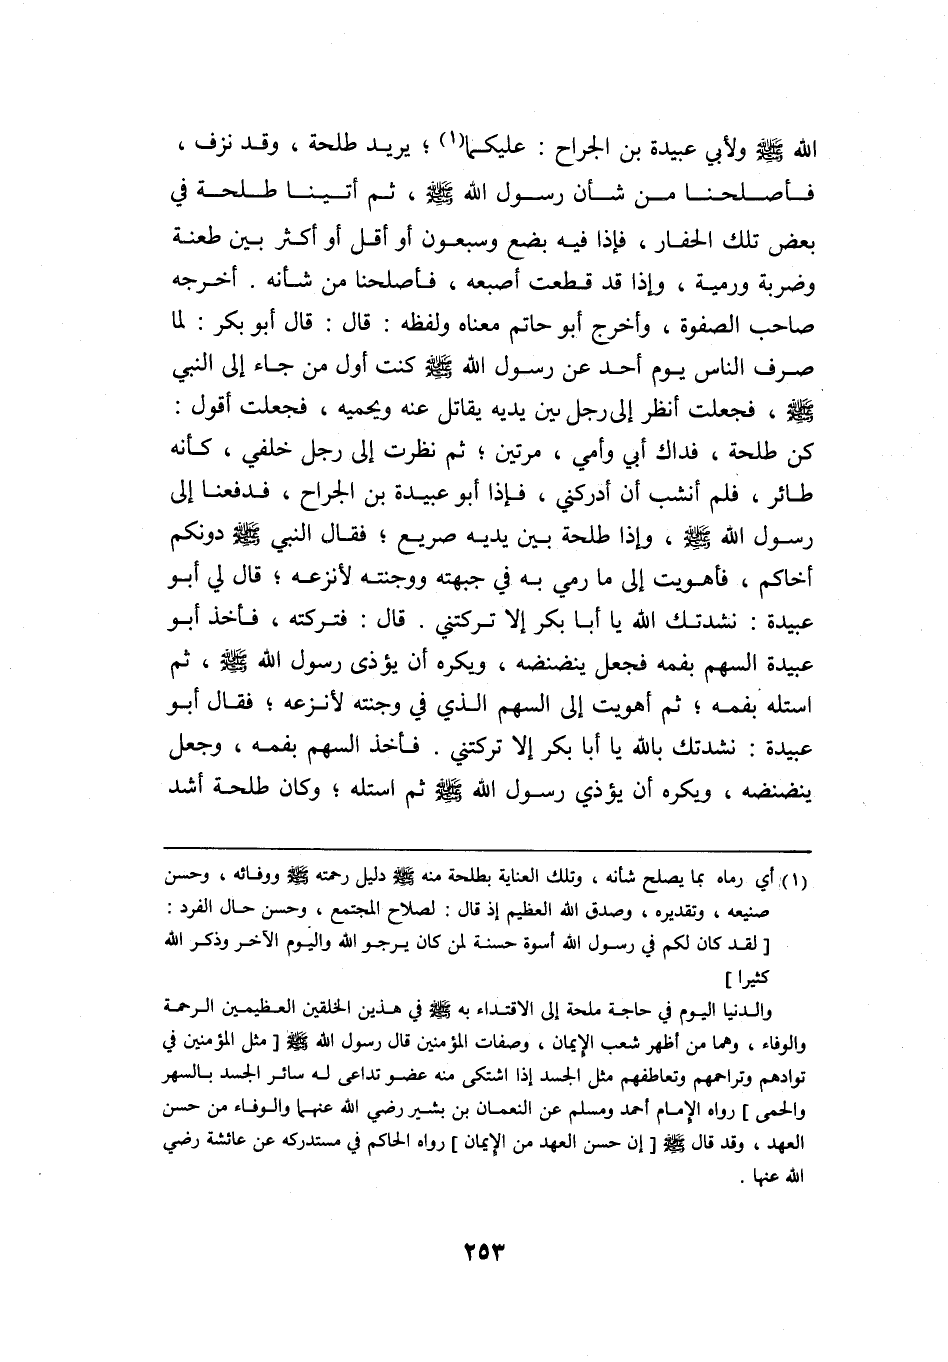 الله ﷺ ولأبي عبيدة بن الجراح : عليكما(١) ؛ يريد طلحة ، وقد نزف ،
فأصلحنا من شأن رسول الله ﷺ ، ثم أتينا طلحة في
بعض تلك الحفار ، فإذا فيه بضع وسبعون أو أقل أو أكثر بين طعنة
وضربة ورمية ، وإذا قد قطعت أصبعه ، فأصلحنا من شأنه . أخرجه
صاحب الصفوة ، وأخرج أبو حاتم معناه ولفظه : قال : قال أبو بكر : لما
صرف الناس يوم أحد عن رسول الله ﷺ كنت أول من جاء إلى النبي
ﷺ ، فجعلت أنظر إلى رجل بين يديه يقاتل عنه ويحميه ، فجعلت أقول :
كن طلحة ، فداك أبي وأمي ، مرتين ؛ ثم نظرت إلى رجل خلفي ، كأنه
طائر ، فلم أنشب أن أدركني ، فإذا أبو عبيدة بن الجراح ، فدفعنا إلى
رسول الله ﷺ ، وإذا طلحة بين يديه صريع ؛ فقال النبي ﷺ دونكم
أخاكم ، فأهويت إلى ما رمي به في جبهته ووجنته لأنزعه ؛ قال لي أبو
عبيدة : نشدتك الله يا أبا بكر إلا تركتني . قال : فتركته ، فأخذ أبو
عبيدة السهم بفمه فجعل ينضنضه ، ويكره أن يؤذى رسول الله ﷺ ، ثم
استله بفمه ؛ ثم أهويت إلى السهم الذي في وجنته لأنزعه ؛ فقال أبو
عبيدة : نشدتك بالله يا أبا بكر إلا تركتني . فأخذ السهم بفمه ، وجعل
ينضنضه ، ويكره أن يؤذي رسول الله ﷺ ثم استله ؛ وكان طلحة أشد
(١) أي رماه بما يصلح شأنه ، وتلك العناية بطلحة منه ﷺ دليل رحمته ﷺ ووفائه ، وحسن
صنيعه ، وتقديره ، وصدق الله العظيم إذ قال : لصلاح المجتمع ، وحسن حال الفرد :
[ لقد كان لكم في رسول الله أسوة حسنة لمن كان يرجو الله واليوم الآخر وذكر الله
كثيرا ]
والدنيا اليوم في حاجة ملحة إلى الاقتداء به ﷺ في هذين الخلقين العظيمين الرحمة
والوفاء ، وهما من أظهر شعب الإيمان ، وصفات المؤمنين قال رسول الله ﷺ [ مثل المؤمنين في
توادهم وتراحمهم وتعاطفهم مثل الجسد إذا اشتكى منه عضو تداعى له سائر الجسد بالسهر
والحمى ] رواه الإمام أحمد ومسلم عن النعمان بن بشير رضي الله عنهما والوفاء من حسن
العهد ، وقد قال ﷺ [ إن حسن العهد من الإيمان ] رواه الحاكم في مستدركه عن عائشة رضي
الله عنها .
٢٥٣